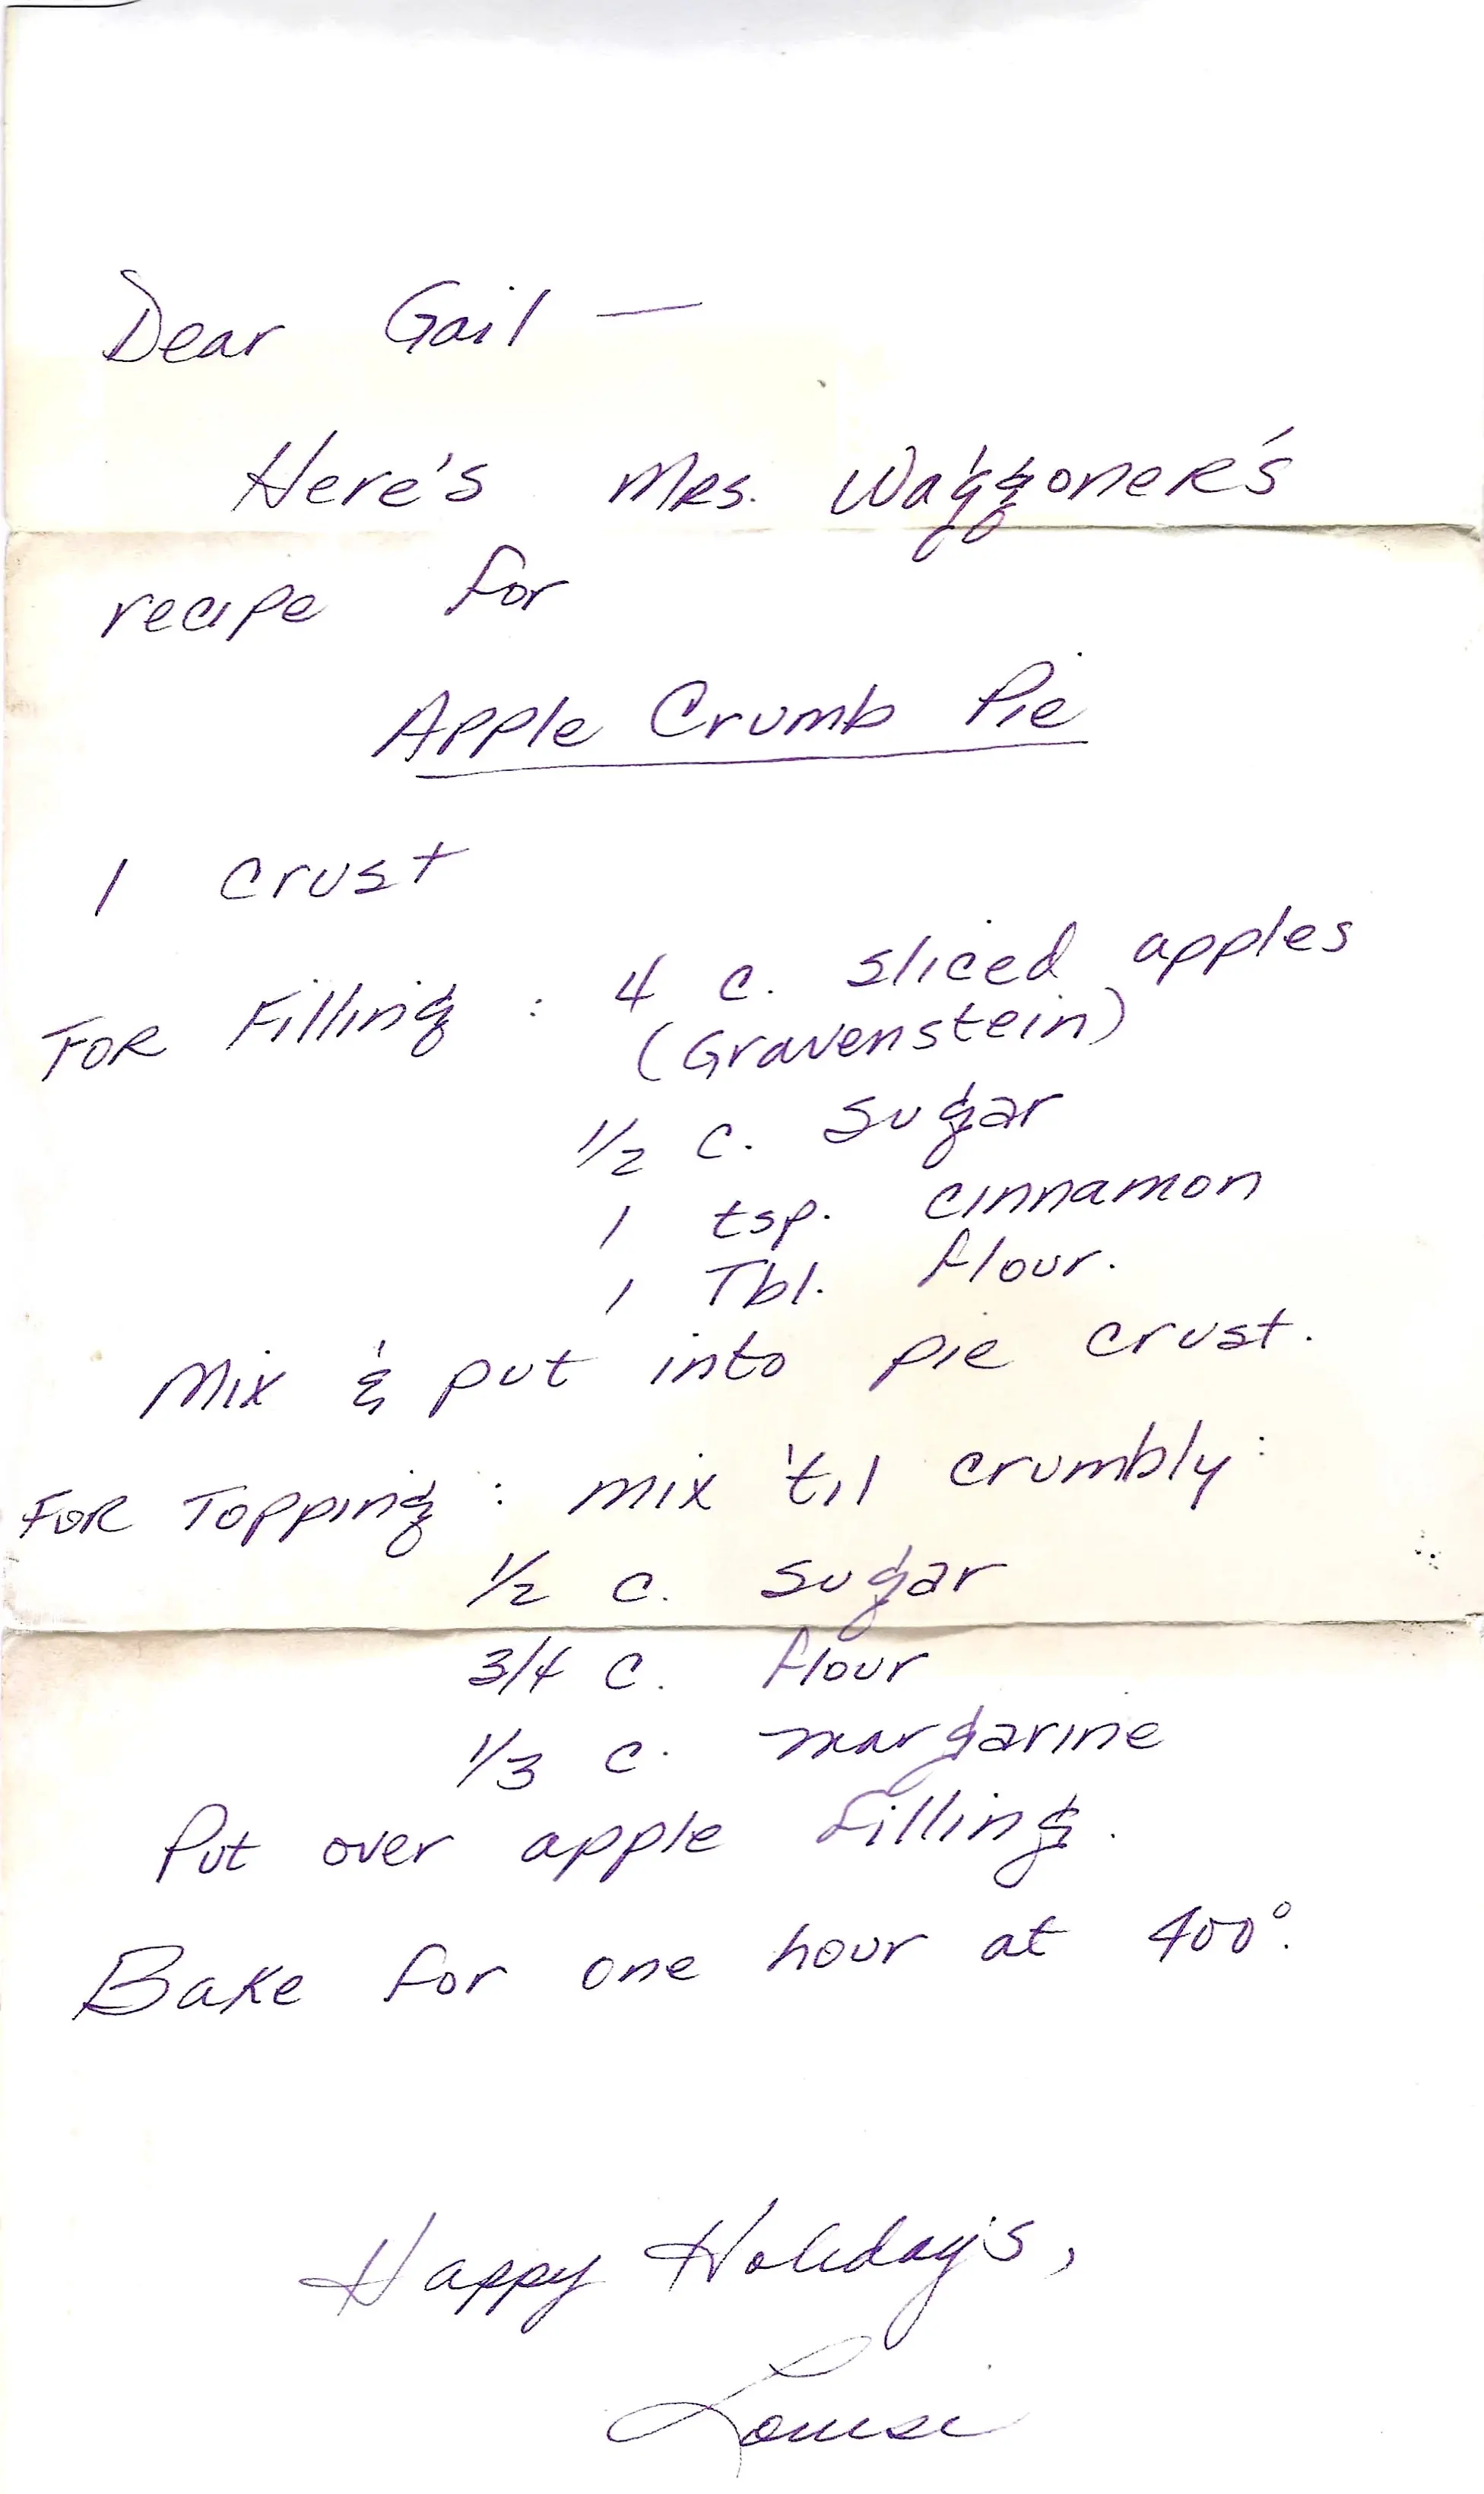 Dear Gail —
Here's Mrs. Waggoner's
recipe for
Apple Crumb Pie
1 crust
For Filling : 4 c. sliced apples
(Gravenstein)
1/2 c. sugar
1 tsp. cinnamon
1 Tbl. flour.
Mix & put into pie crust.
For Topping : mix 'til crumbly:
1/2 c. sugar
3/4 c. flour
1/3 c. margarine
Put over apple filling.
Bake for one hour at 400°.
Happy Holidays,
Louise